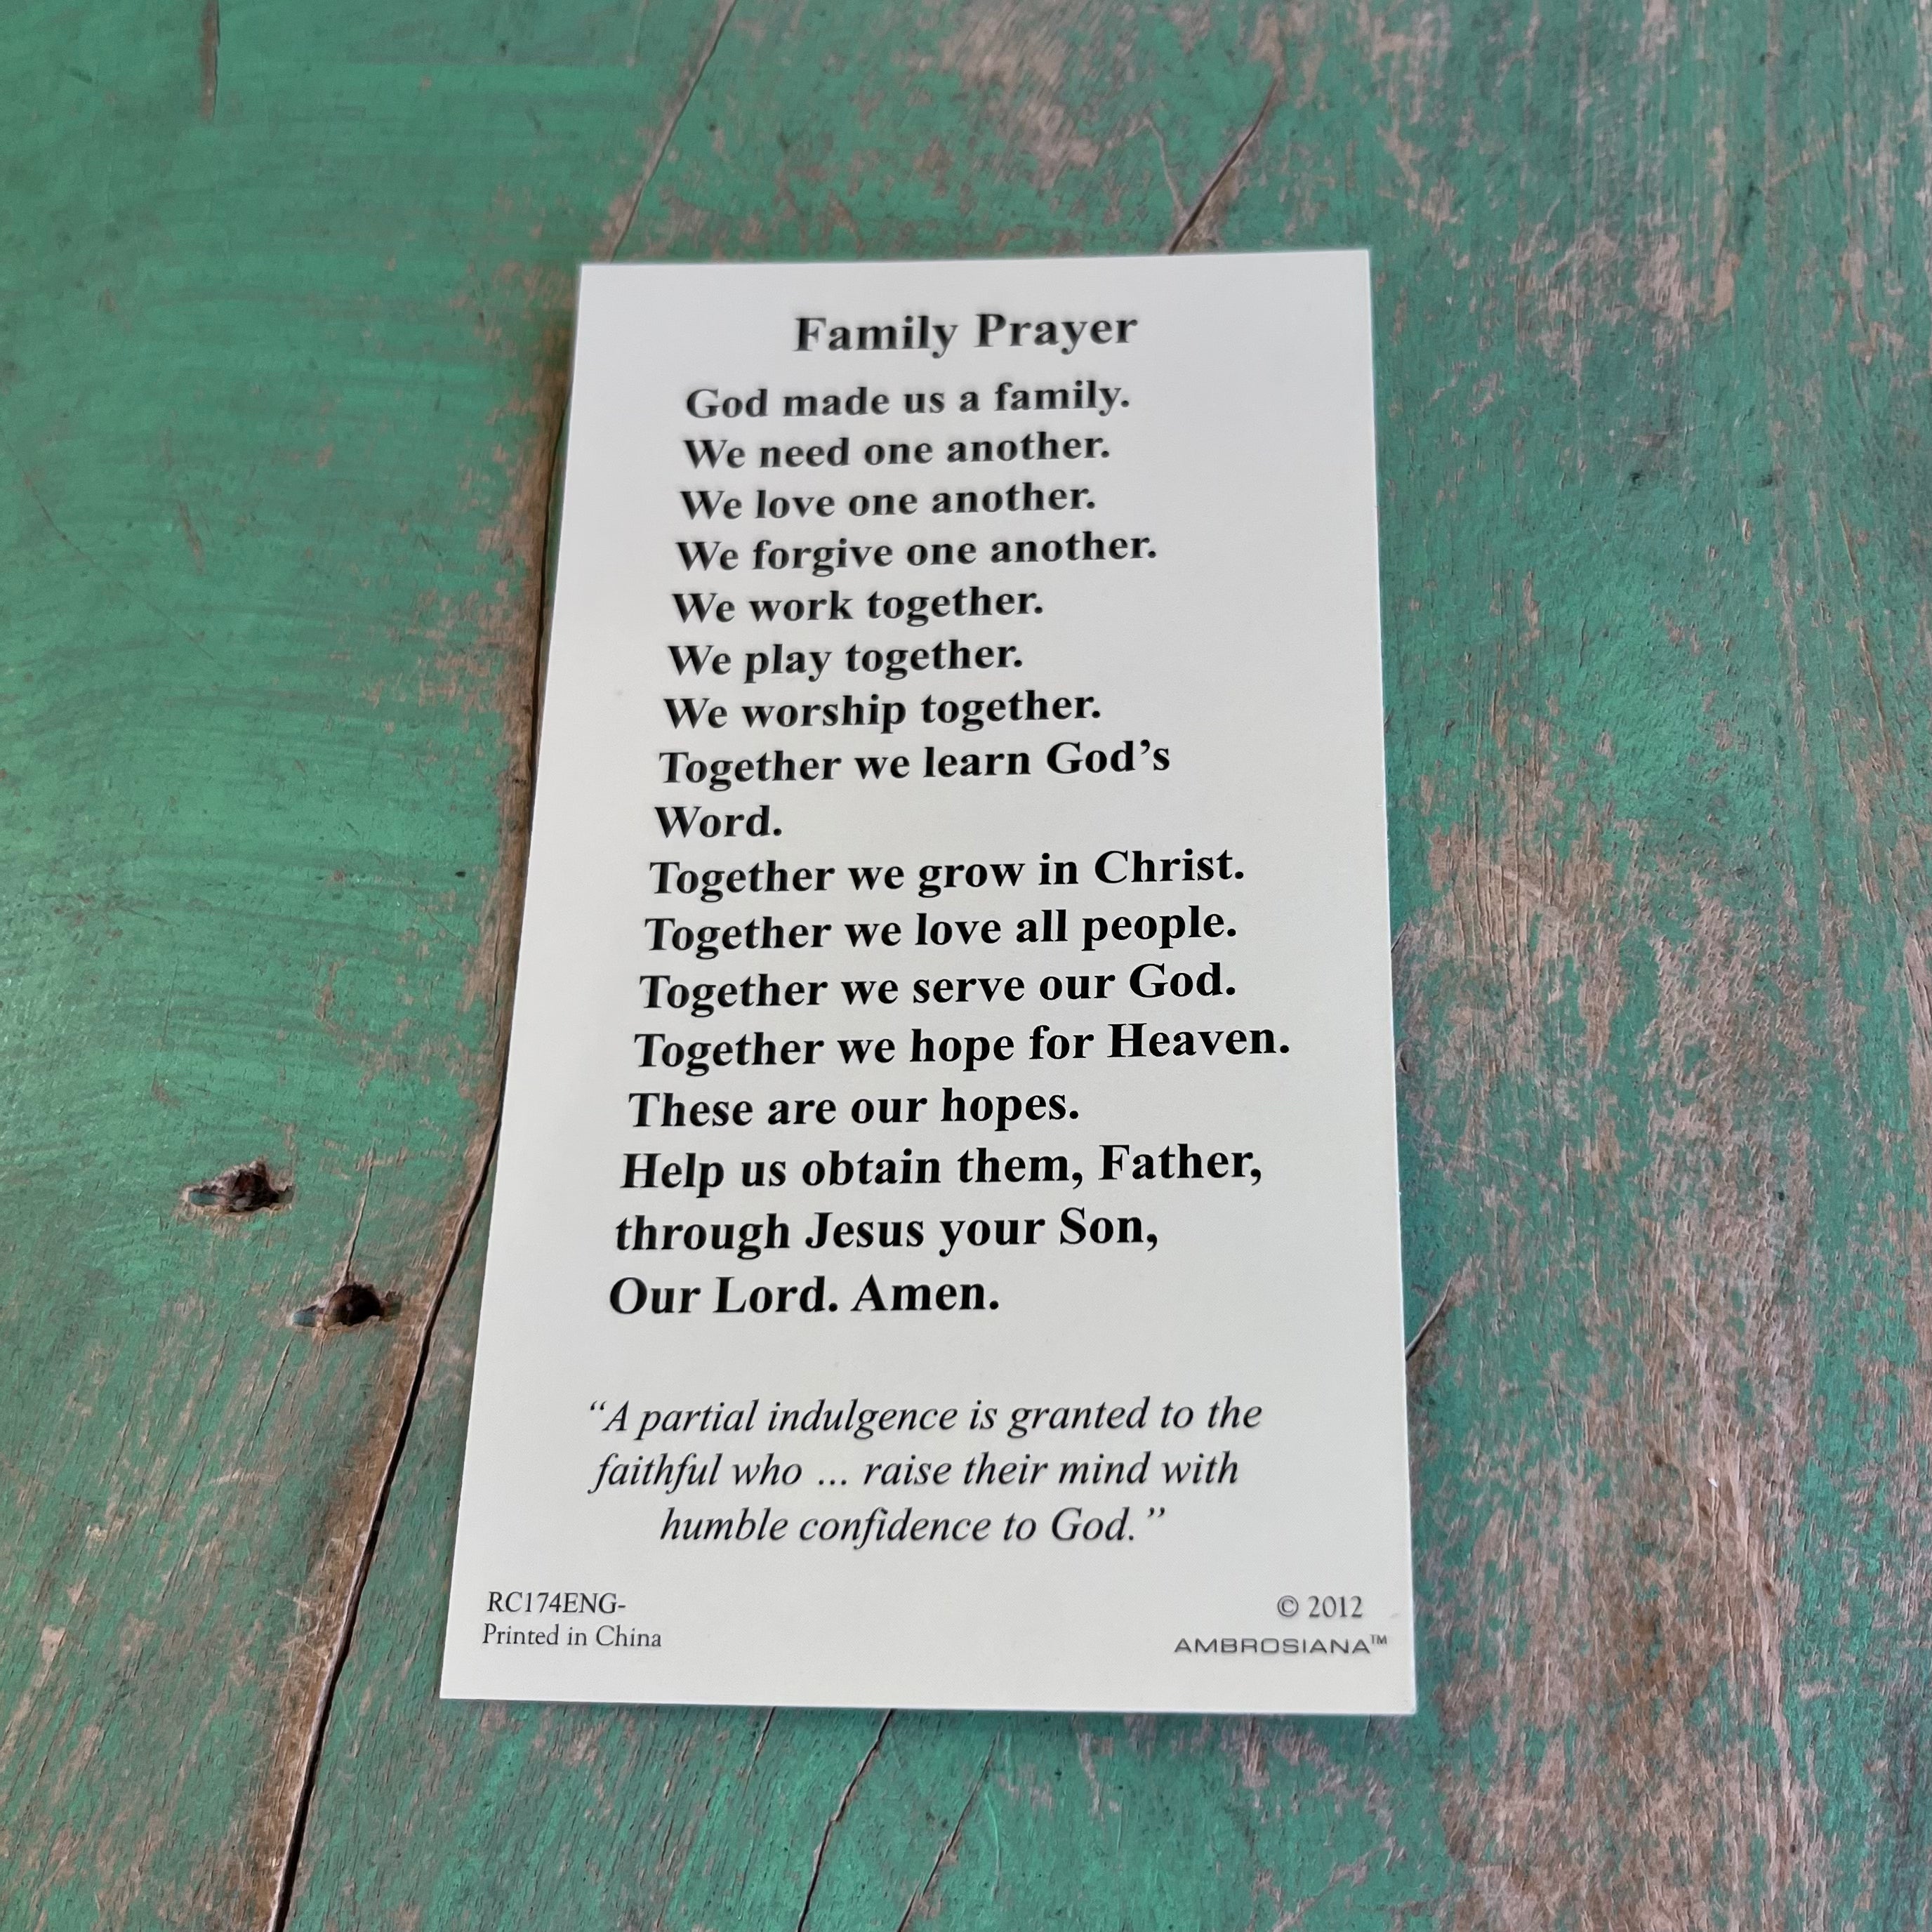 Family Prayer
God made us a family.
We need one another.
We love one another.
We forgive one another.
We work together.
We play together.
We worship together.
Together we learn God’s
Word.
Together we grow in Christ.
Together we love all people.
Together we serve our God.
Together we hope for Heaven.
These are our hopes.
Help us obtain them, Father,
through Jesus your Son,
Our Lord. Amen.
“A partial indulgence is granted to the
faithful who ... raise their mind with
humble confidence to God.”
RC174ENG-
Printed in China
© 2012
AMBROSIANA™